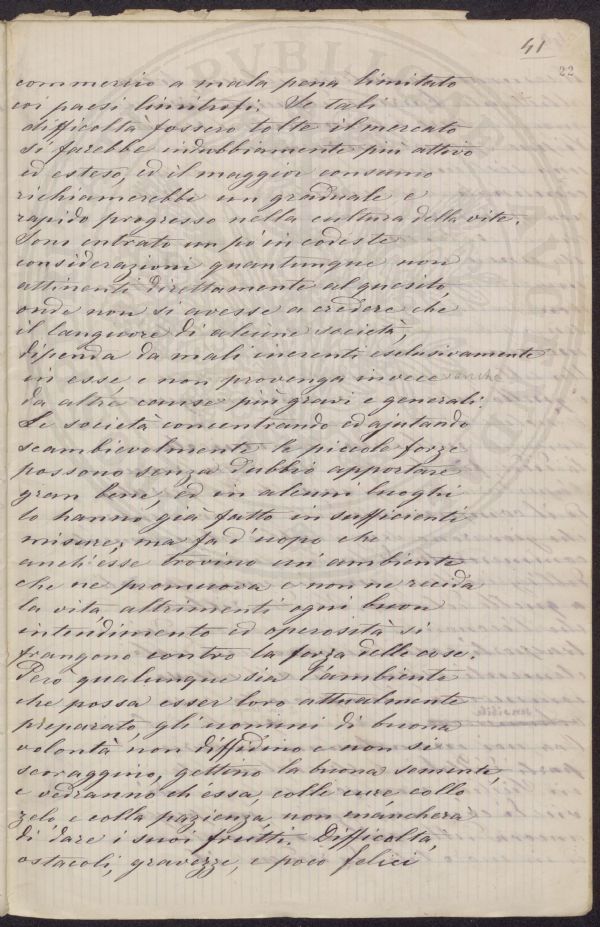 41
22
commercio a mala pena limitato
coi paesi limitrofi. Se tali
difficoltà fossero tolte il mercato
si farebbe indubbiamente più attivo
ed esteso, ed il maggior consumo
richiamerebbe un graduale e
rapido progresso nella cultura della vite.
Sono entrato un pò in codeste
considerazioni quantunque non
attinenti direttamente al quesito,
onde non si avesse a credere che
il languore di alcune società,
dipenda da mali inerenti esclusivamente
in esse, e non provenga invece
da altre cause più gravi e generali.
Le società concentrando ed ajutando
scambievolmente le piccole forze
possono senza dubbio apportare
gran bene, ed in alcuni luoghi
lo hanno già fatto in sufficienti
misure, ma fa d'uopo che
anch'esse trovino un'ambiente
che ne promuova e non ne recida
la vita, altrimenti ogni buon
intendimento ed operosità si
frangono contro la forza delle cose.
Però qualunque sia l'ambiente
che possa esser loro attualmente
preparato gli uomini di buona
volontà non diffidino e non si
scoraggino, gettino la buona semente,
e vedranno ch'essa, colle cure collo
zelo e colla pazienza, non mancherà
di dare i suoi frutti. Difficoltà,
ostacoli, gravezze, e poco felici